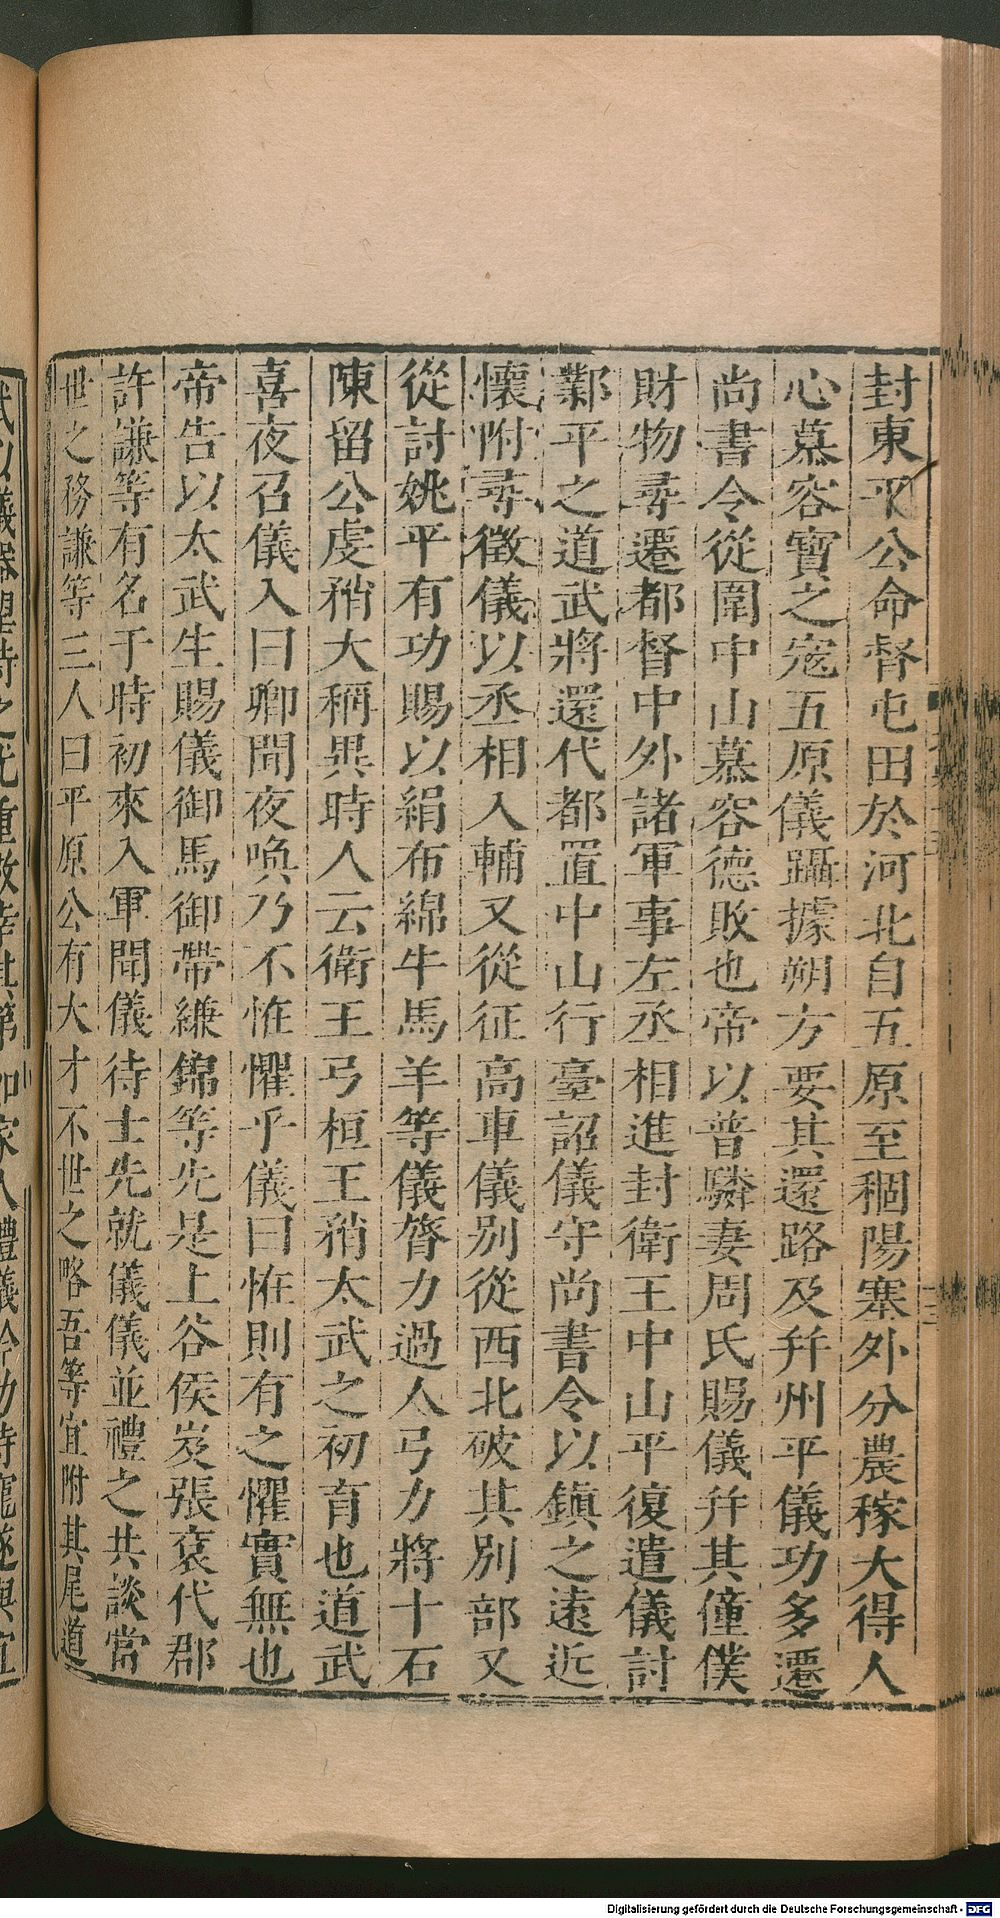 封東平公命督屯田於河北自五原至稒陽塞外分農稼大得人
心慕容寶之寇五原儀躡據朔方要其還路及幷州平儀功多遷
尚書令從圍中山慕容德敗也帝以普驎妻周氏賜儀幷其僮僕
財物尋遷都督中外諸軍事左丞相進封衛王中山平復遣儀討
鄴平之道武將還代都置中山行臺詔儀守尚書令以鎮之遠近
懷附尋徵儀以丞相入輔又從征高車儀別從西北破其別部又
從討姚平有功賜以絹布綿牛馬羊等儀膂力過人弓力將十石
陳留公虔矟大稱異時人云衛王弓桓王矟太武之初育也道武
喜夜召儀入曰卿聞夜喚乃不怪懼乎儀曰怪則有之懼實無也
帝告以太武生賜儀御馬御帶縑錦等先是上谷侯岌張袞代郡
許謙等有名于時初來入軍聞儀待士先就儀儀並禮之共談當
世之務謙等三人曰平原公有大才不世之略吾等宜附其尾道
Digitalisierung gefördert durch die Deutsche Forschungsgemeinschaft - DFG